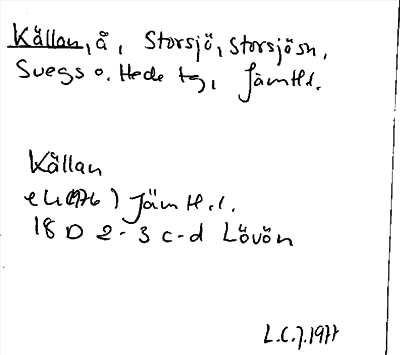 Källan, å, Storsjö, Storsjösn,
Svegs o. Hede tg, Jämtl.
Källan
ek (1976) Jämtl.l.
18 D 2-3 c-d Lövön
L.C.J. 1977